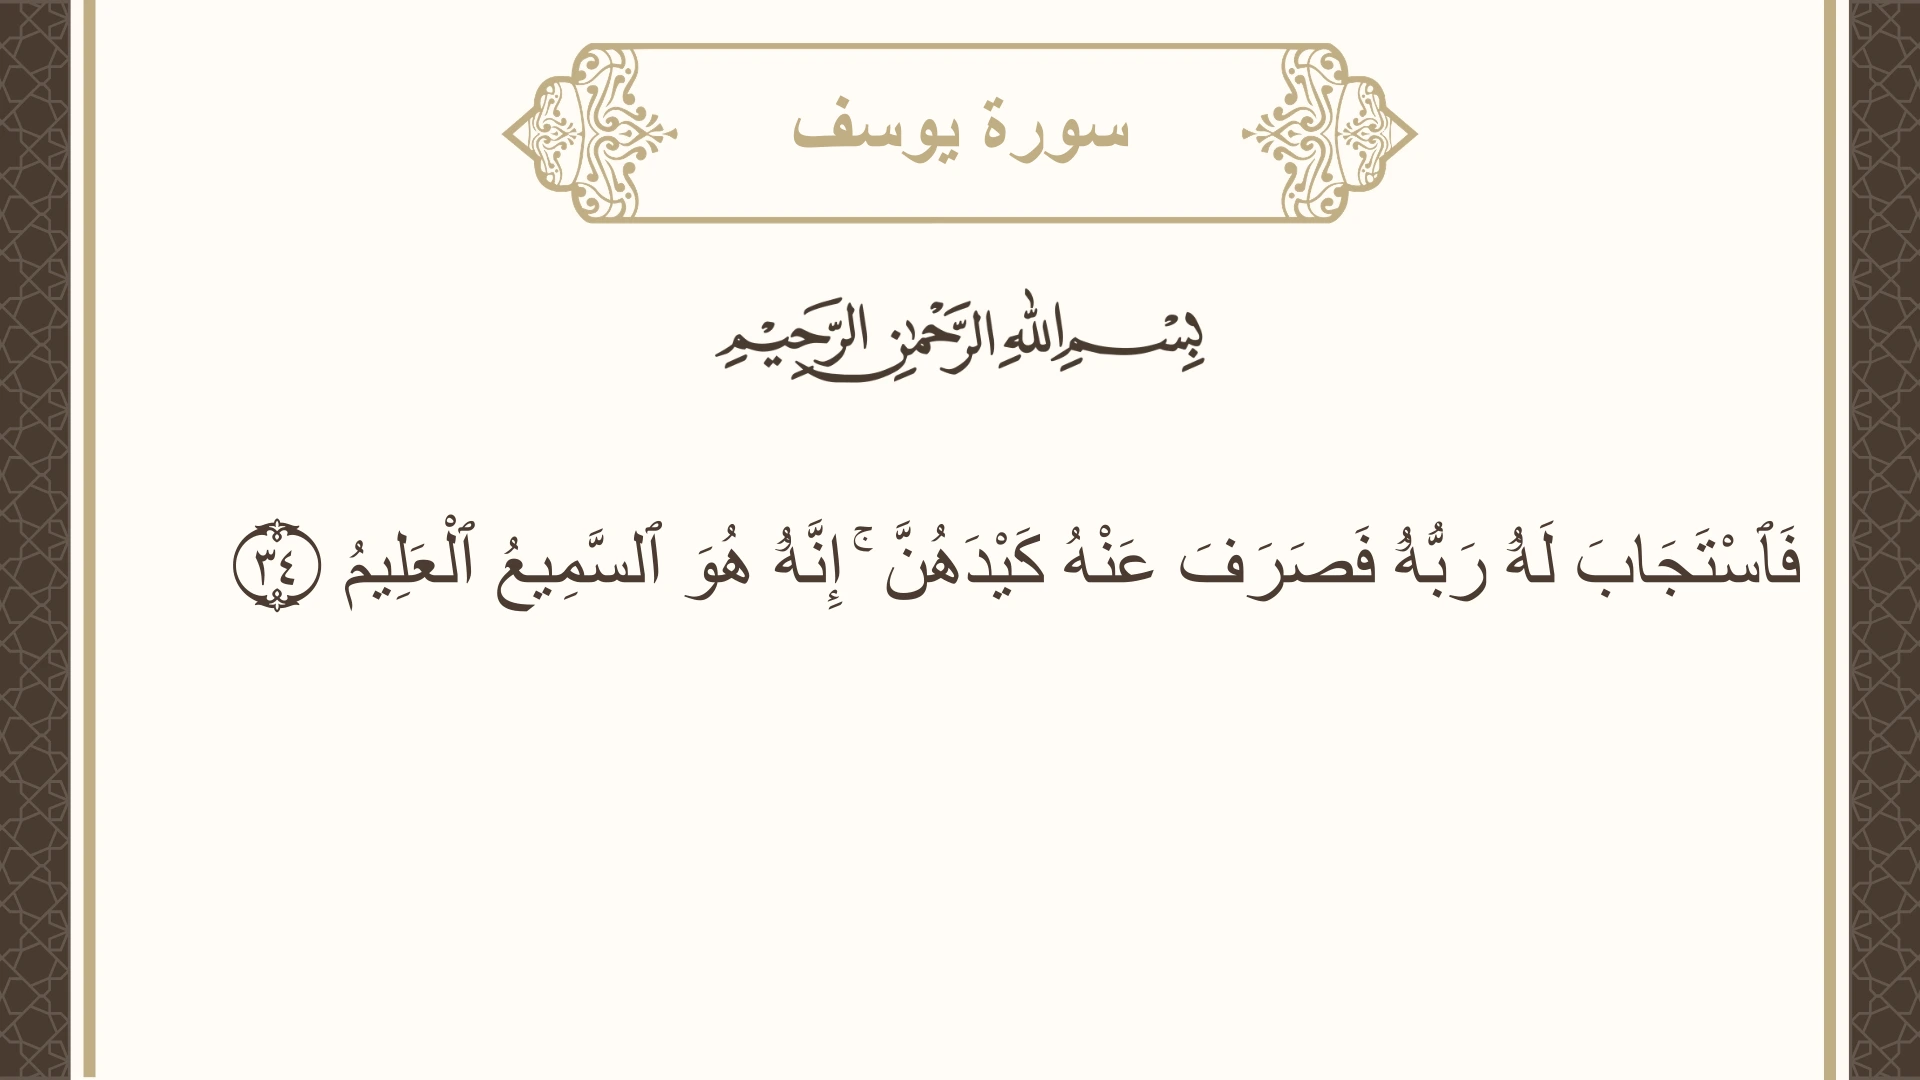 سورة يوسف
بِسْمِ اللهِ الرَّحْمٰنِ الرَّحِيْمِ
فَٱسْتَجَابَ لَهُۥ رَبُّهُۥ فَصَرَفَ عَنْهُ كَيْدَهُنَّ ۚ إِنَّهُۥ هُوَ ٱلسَّمِيعُ ٱلْعَلِيمُ ٣٤